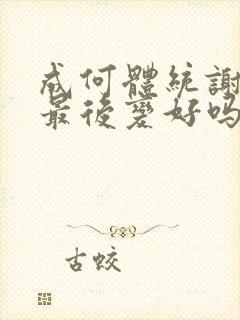 成何體統謝
最後變好嗎
古蛟